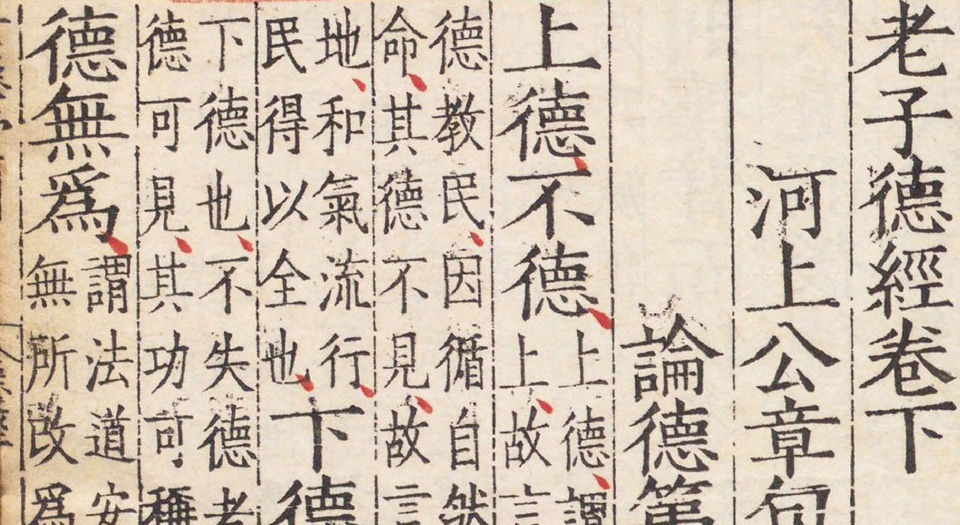 老子德經卷下
河上公章句
論德第
上德不德
上德謂
上故言
德教民因循自然
命其德不見故言
地和氣流行
民得以全也
下德
下德也不失德者
德可見其功可稱
德無爲
謂法道安
無所改爲